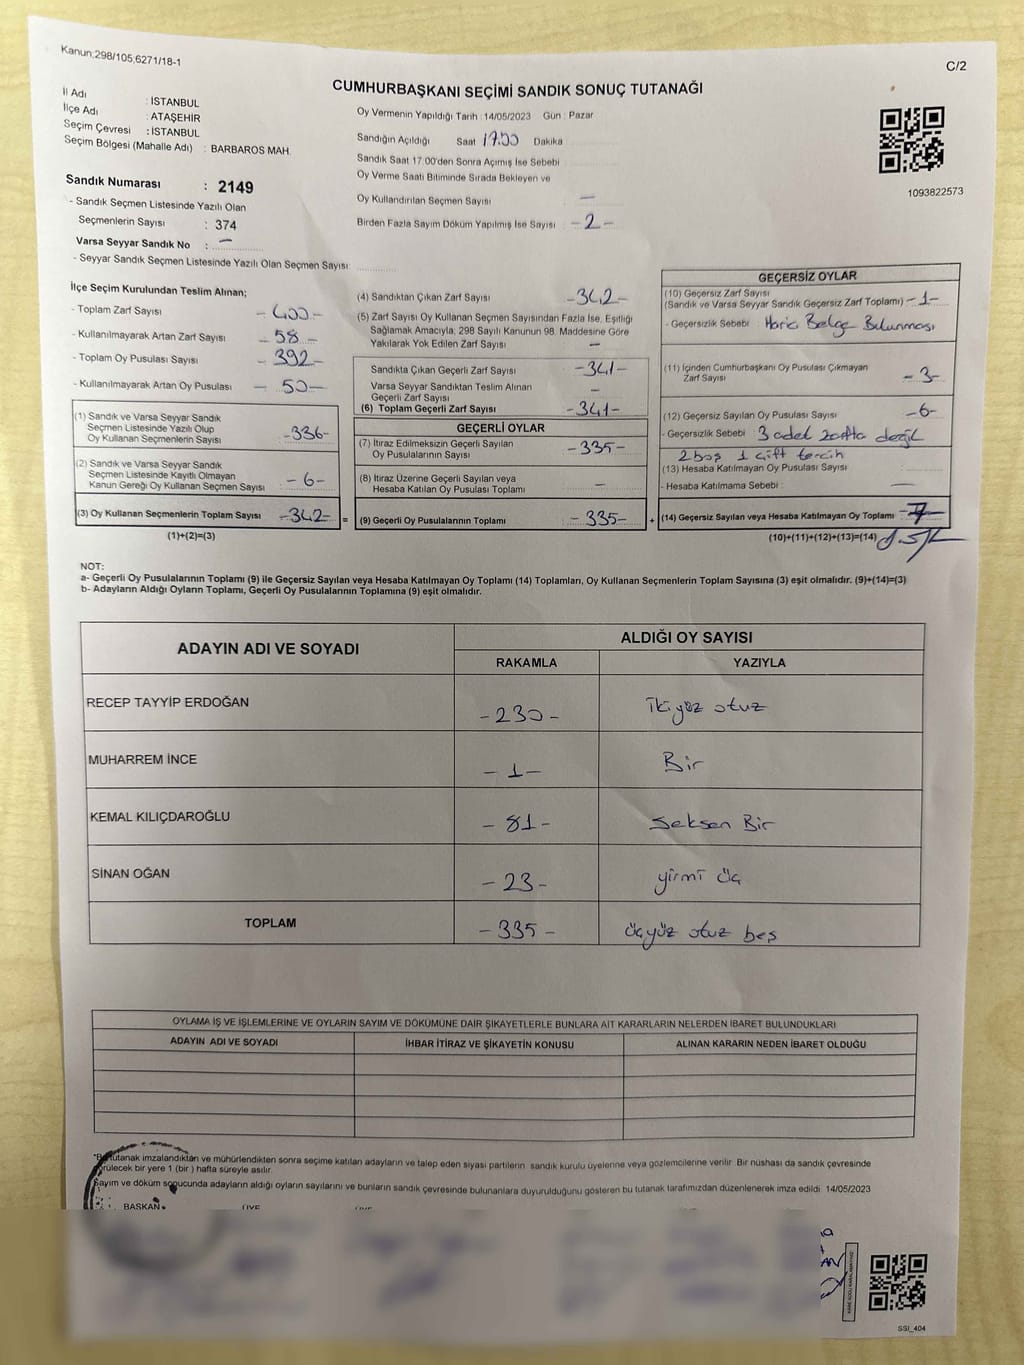 Kanun;298/105,6271/18-1
C/2
CUMHURBAŞKANI SEÇİMİ SANDIK SONUÇ TUTANAĞI
İl Adı : İSTANBUL
İlçe Adı : ATAŞEHİR
Seçim Çevresi : İSTANBUL
Seçim Bölgesi (Mahalle Adı) : BARBAROS MAH.
Sandık Numarası : 2149
- Sandık Seçmen Listesinde Yazılı Olan
Seçmenlerin Sayısı : 374
Varsa Seyyar Sandık No : —
- Seyyar Sandık Seçmen Listesinde Yazılı Olan Seçmen Sayısı:
Oy Vermenin Yapıldığı Tarih : 14/05/2023 Gün : Pazar
Sandığın Açıldığı Saat 17.00 Dakika
Sandık Saat 17.00'den Sonra Açımış İse Sebebi
Oy Verme Saati Bitiminde Sırada Bekleyen ve
Oy Kullandırılan Seçmen Sayısı —
Birden Fazla Sayım Döküm Yapılmış İse Sayısı - 2 -
1093822573
İlçe Seçim Kurulundan Teslim Alınan;
- Toplam Zarf Sayısı - 400 -
- Kullanılmayarak Artan Zarf Sayısı - 58 -
- Toplam Oy Pusulası Sayısı - 392 -
- Kullanılmayarak Artan Oy Pusulası - 50 -
(1) Sandık ve Varsa Seyyar Sandık
Seçmen Listesinde Yazılı Olup
Oy Kullanan Seçmenlerin Sayısı -336-
(2) Sandık ve Varsa Seyyar Sandık
Seçmen Listesinde Kayıtlı Olmayan
Kanun Gereği Oy Kullanan Seçmen Sayısı - 6 -
(3) Oy Kullanan Seçmenlerin Toplam Sayısı -342- =
(1)+(2)=(3)
(4) Sandıktan Çıkan Zarf Sayısı -342-
(5) Zarf Sayısı Oy Kullanan Seçmen Sayısından Fazla İse, Eşitliği
Sağlamak Amacıyla, 298 Sayılı Kanunun 98. Maddesine Göre
Yakılarak Yok Edilen Zarf Sayısı —
Sandıkta Çıkan Geçerli Zarf Sayısı -341-
Varsa Seyyar Sandıktan Teslim Alınan
Geçerli Zarf Sayısı —
(6) Toplam Geçerli Zarf Sayısı -341-
GEÇERLİ OYLAR
(7) İtiraz Edilmeksizin Geçerli Sayılan
Oy Pusulalarının Sayısı -335-
(8) İtiraz Üzerine Geçerli Sayılan veya
Hesaba Katılan Oy Pusulası Toplamı —
(9) Geçerli Oy Pusulalarının Toplamı -335- +
GEÇERSİZ OYLAR
(10) Geçersiz Zarf Sayısı
(Sandık ve Varsa Seyyar Sandık Geçersiz Zarf Toplamı) - 1 -
- Geçersizlik Sebebi Harici Belge Bulunması
(11) İçinden Cumhurbaşkanı Oy Pusulası Çıkmayan
Zarf Sayısı - 3 -
(12) Geçersiz Sayılan Oy Pusulası Sayısı - 6 -
- Geçersizlik Sebebi 3 adet zarfta değil
2 boş 1 çift tercih
(13) Hesaba Katılmayan Oy Pusulası Sayısı
- Hesaba Katılmama Sebebi : —
(14) Geçersiz Sayılan veya Hesaba Katılmayan Oy Toplamı - 7 -
(10)+(11)+(12)+(13)=(14)
NOT:
a- Geçerli Oy Pusulalarının Toplamı (9) ile Geçersiz Sayılan veya Hesaba Katılmayan Oy Toplamı (14) Toplamları, Oy Kullanan Seçmenlerin Toplam Sayısına (3) eşit olmalıdır. (9)+(14)=(3)
b- Adayların Aldığı Oyların Toplamı, Geçerli Oy Pusulalarının Toplamına (9) eşit olmalıdır.
ADAYIN ADI VE SOYADI ALDIĞI OY SAYISI
RAKAMLA YAZIYLA
RECEP TAYYİP ERDOĞAN -230- ikiyüz otuz
MUHARREM İNCE - 1 - Bir
KEMAL KILIÇDAROĞLU - 81 - Seksen Bir
SİNAN OĞAN - 23 - yirmi üç
TOPLAM - 335 - üçyüz otuz beş
OYLAMA İŞ VE İŞLEMLERİNE VE OYLARIN SAYIM VE DÖKÜMÜNE DAİR ŞİKAYETLERLE BUNLARA AİT KARARLARIN NELERDEN İBARET BULUNDUKLARI
ADAYIN ADI VE SOYADI İHBAR İTİRAZ VE ŞİKAYETİN KONUSU ALINAN KARARIN NEDEN İBARET OLDUĞU
tutanak imzalandıktan ve mühürlendikten sonra seçime katılan adayların ve talep eden siyasi partilerin sandık kurulu üyelerine veya gözlemcilerine verilir. Bir nüshası da sandık çevresinde
görülecek bir yere 1 (bir ) hafta süreyle asılır.
Sayım ve döküm sonucunda adayların aldığı oyların sayılarını ve bunların sandık çevresinde bulunanlara duyurulduğunu gösteren bu tutanak tarafımızdan düzenlenerek imza edildi. 14/05/2023
BAŞKAN ÜYE ÜYE
SSI_404